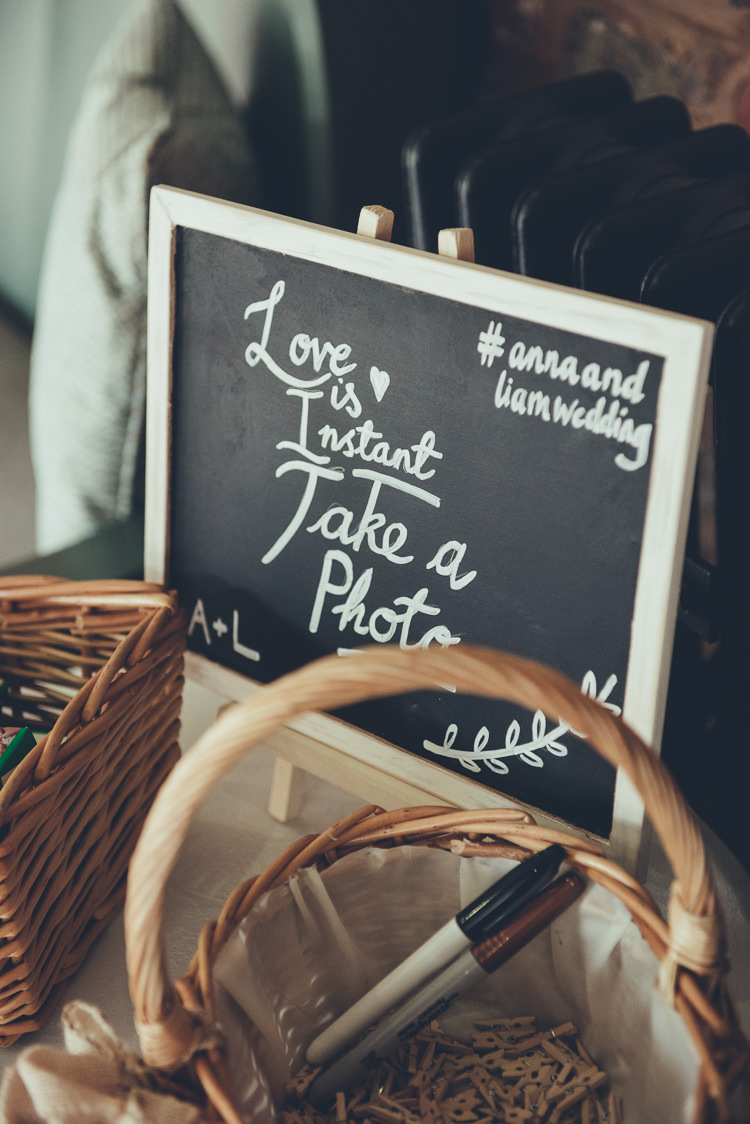 Love
is
Instant
Take a
Photo
#annaand
liamwedding
A+L